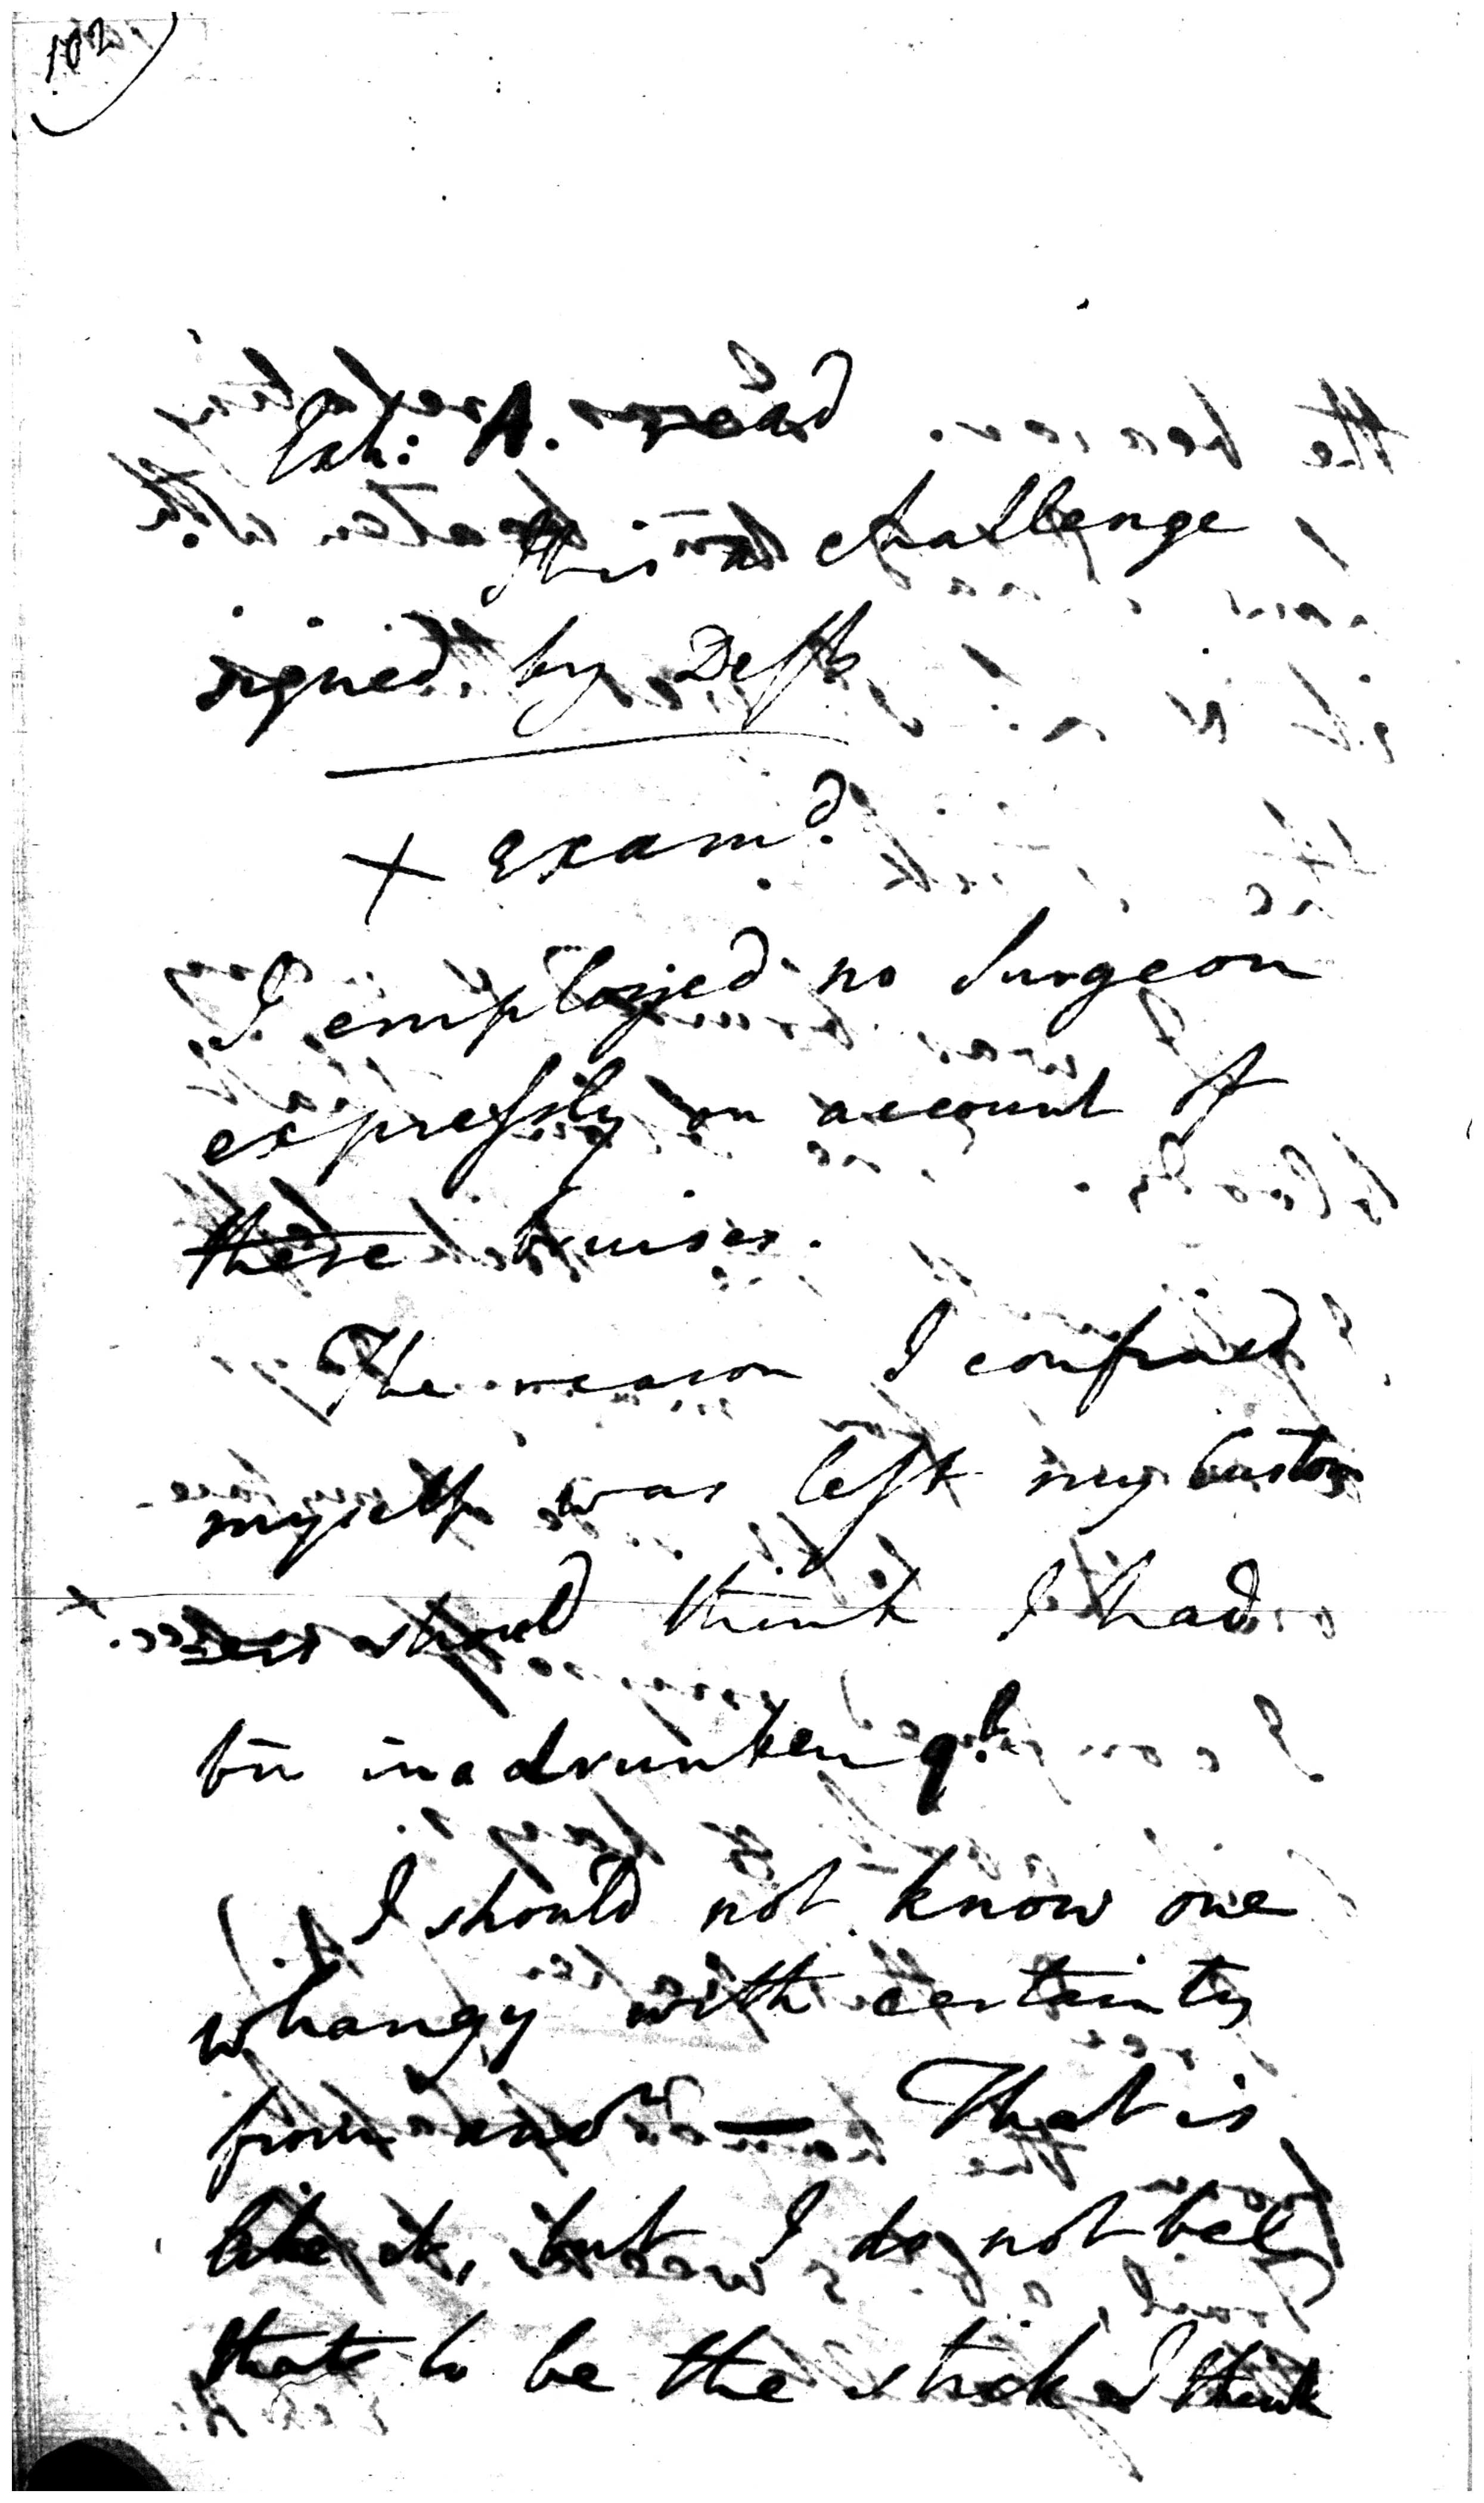 102
Exh: A. read
this is a challenge
signed by Deft
X Examd.
I employed no Surgeon
expressly on account of
these bruises.
The reason I confined
myself was lest my custom
ers should think I had
bn in a drunken ql.
I should not know one
whangy with certainty
from anor — That is
like it, but I do not bel
that to be the stick I think